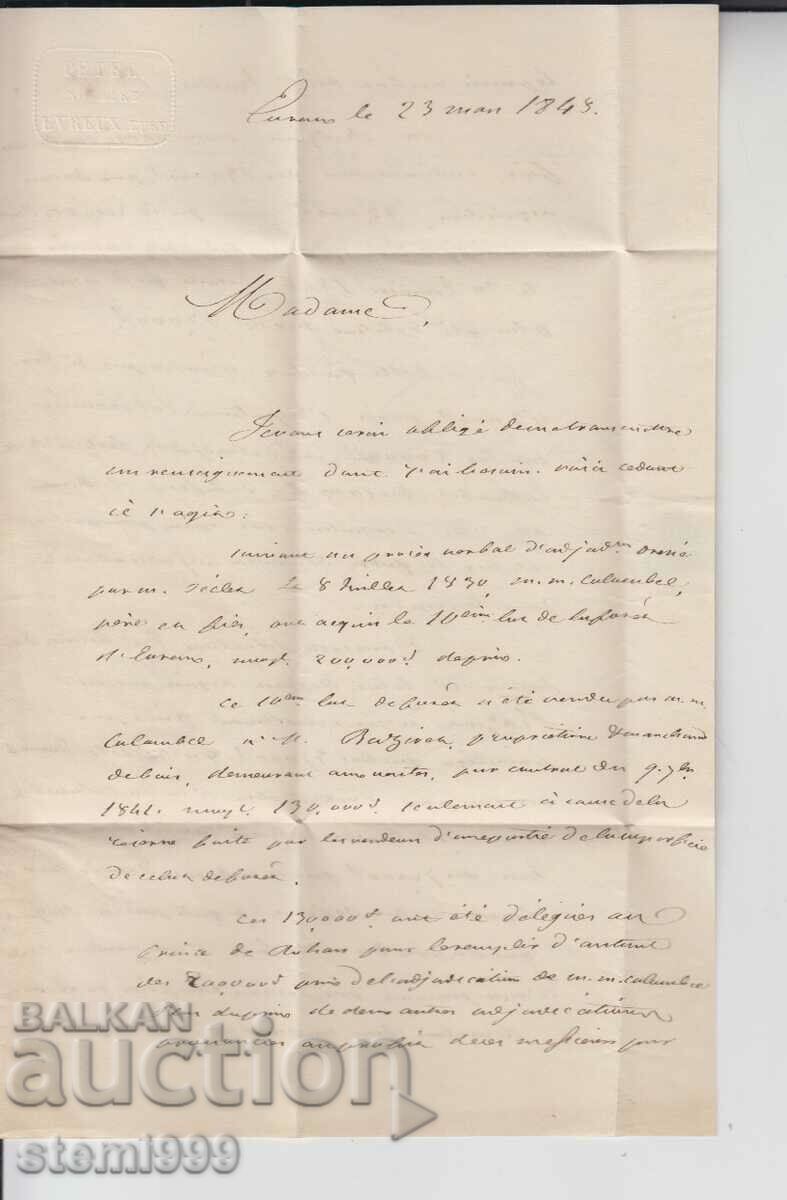 EVREUX
Evreux le 23 mars 1843.
Madame,
Je vous serai obligé de me transmettre
un renseignement dont j'ai besoin. voici ce dont
il s'agit:
suivant un procès verbal d'adjudon dressé
par m. le 8 Juillet 1830, m.m. Calambel,
père et fils, ont acquis le 10ème lot de la forêt
d'Evreux, moyt. 200,000f de prix.
Ce 10em lot de forêt a été vendu par m.m.
Calambel à M. propriétaire & marchand
de bois, demeurant par contrat du 9. 7bre
1841. moyt. 130,000f. seulement à cause de la
réserve faite par les vendeurs d'une partie de la superficie
de ce lot de forêt.
Ces 130,000f. ont été délégués au
Prince de Rohan pour le remplir d'autant
des 200,000f prix de l'adjudication de m.m. Calambel
du prix de deux autres adjudications
au profit de ces messieurs pour
BALKAN
auction
stemi999